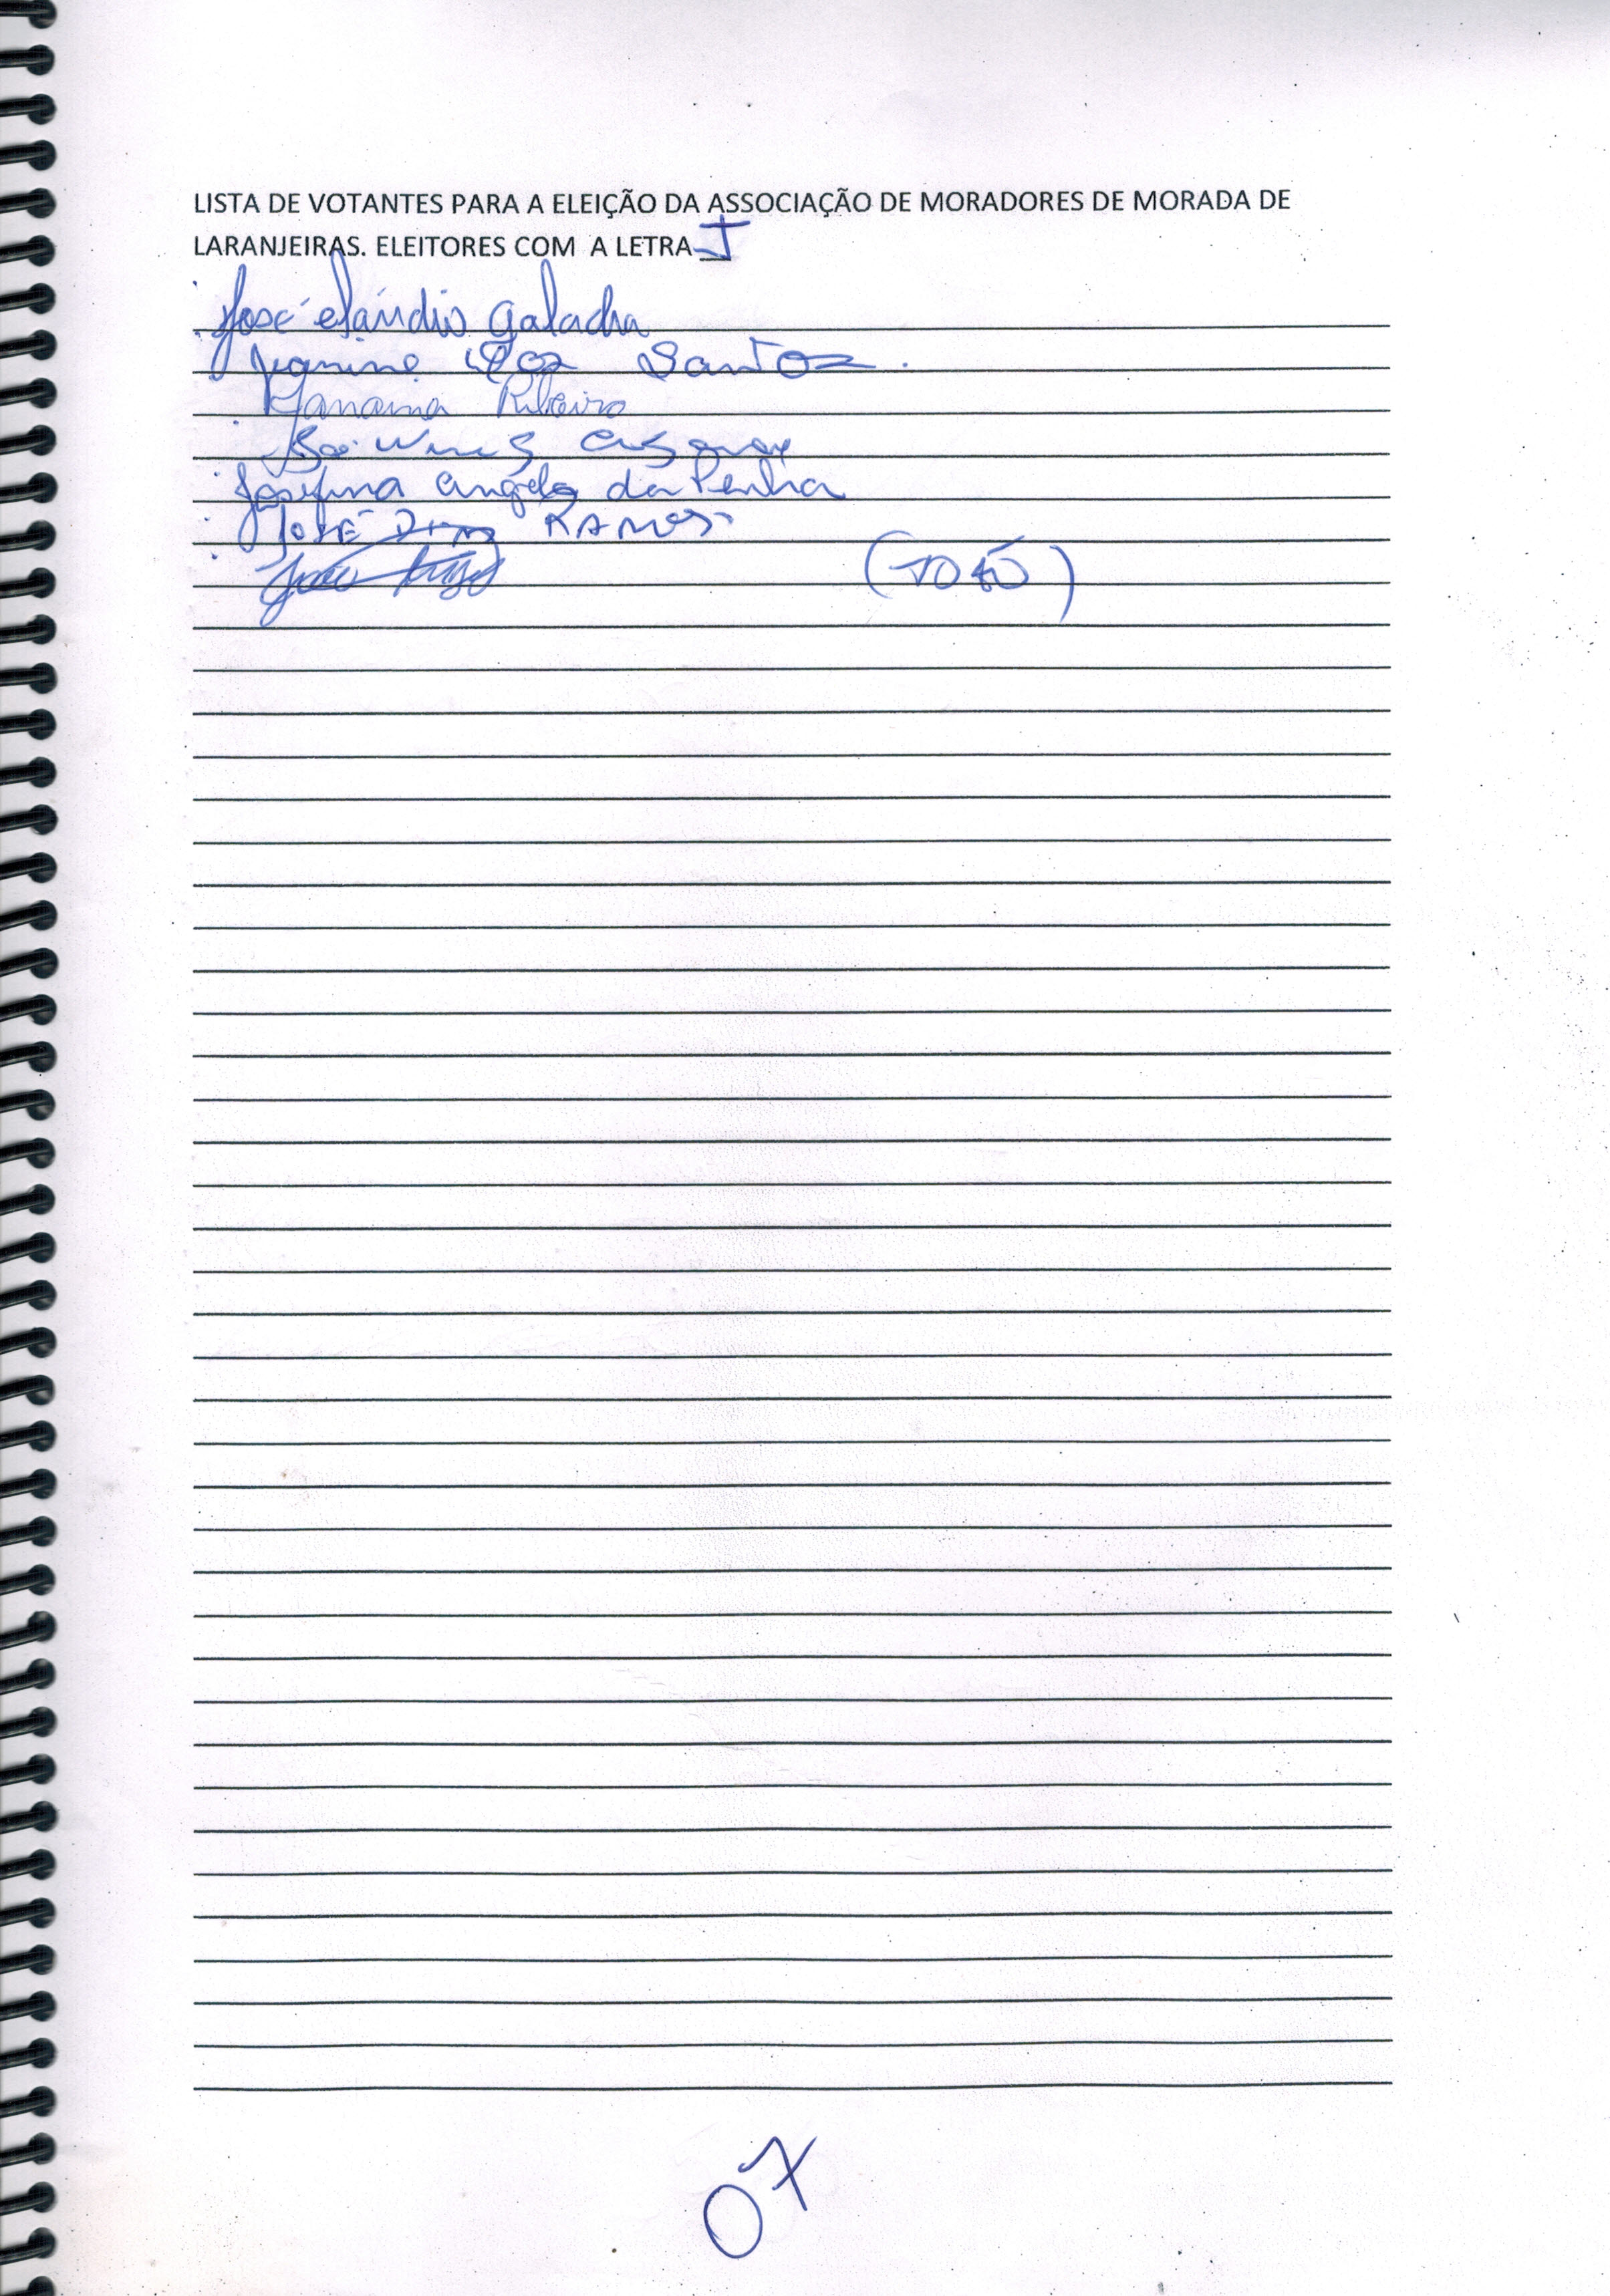 LISTA DE VOTANTES PARA A ELEIÇÃO DA ASSOCIAÇÃO DE MORADORES DE MORADA DE
LARANJEIRAS. ELEITORES COM A LETRA J
José elaúdio galacha
Santos.
Janaina Ribeiro
Josefina angela da Penha
JOSÉ DIAS RAMOS
João
07